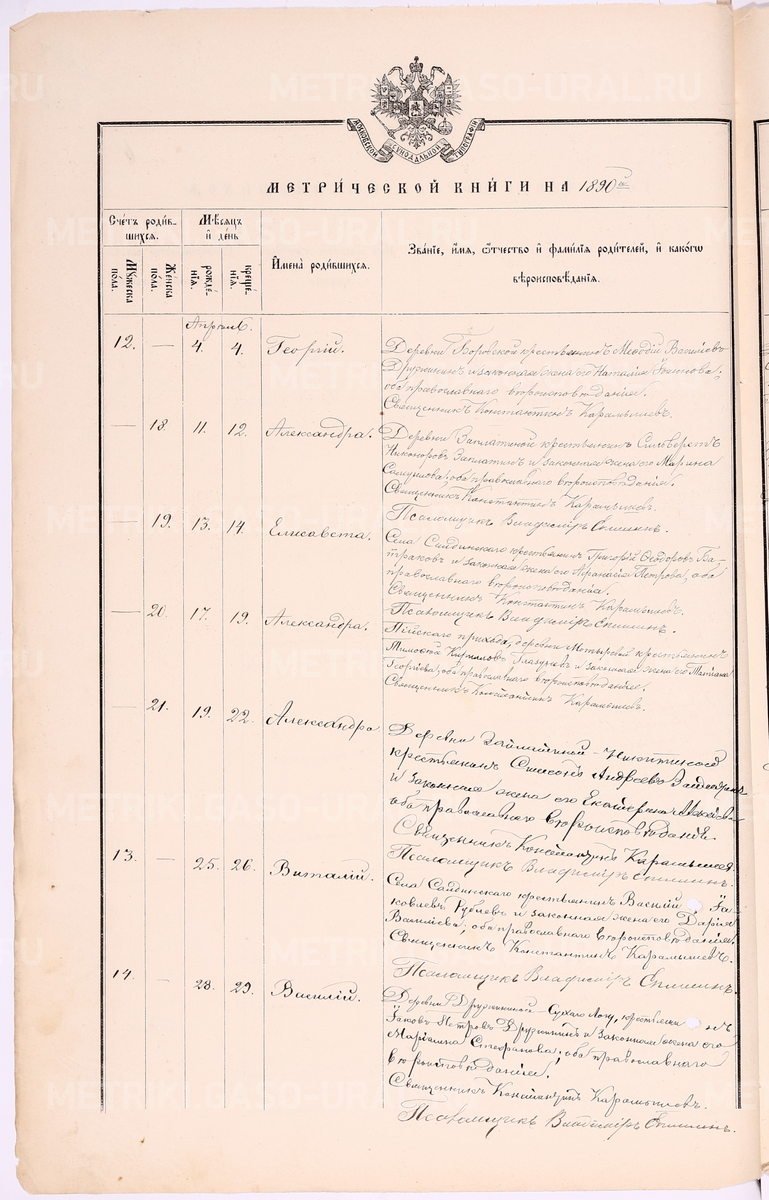 МОСКОВСКОЙ СѴНОДАЛЬНОЙ ТИПОГРАФІИ
МЕТРИ́ЧЕСКОЙ КНИ́ГИ НА 1890й
Счетъ роди́вшихся.
Мѣсяцъ и день
Имена̀ роди́вшихся.
Зва́ніе, имя, ѻтчество и фами́лїя роди́телей, и како́гѡ
вѣроисповѣ́данїя.
Мꙋжеска по́ла.
Же́нска по́ла.
рожде́нїя.
креще́нїя.
Апрѣль.
12. — 4. 4. Георгій.
Деревни Боровской крестьянинъ Меѳодій Василіевъ
Дружининъ и законная жена его Наталія Іоаннова;
оба православнаго вѣроисповѣданія.
Священникъ Константинъ Карамышевъ.
— 18. 11. 12. Александра.
Деревни Заплатиной крестьянинъ Сильвестръ
Никоноровъ Заплатинъ и законная жена его Марина
Самуилова; оба православнаго вѣроисповѣданія.
Священникъ Константинъ Карамышевъ.
Псаломщикъ Владиміръ Епишинъ.
— 19. 13. 14. Елисавета.
Села Саидинскаго крестьянинъ Григорій Ѳеодоровъ Ба-
траковъ и законная жена его Аѳанасія Петрова, оба
православнаго вѣроисповѣданія.
Священникъ Константинъ Карамышевъ.
Псаломщикъ Владиміръ Епишинъ.
— 20. 17. 19. Александра.
прихода, деревни крестьянинъ
Тимоѳей Кирилловъ Глазуновъ и законная жена его Татіана
Георгіева; оба православнаго вѣроисповѣданія.
Священникъ Константинъ Карамышевъ.
— 21. 19. 22. Александра
Деревни
крестьянинъ Симеонъ Андреевъ
и законная жена его Екатерина
оба православнаго вѣроисповѣданія.
Священникъ Константинъ Карамышевъ.
Псаломщикъ Владиміръ Епишинъ.
13. — 25. 26. Виталій.
Села Саидинскаго крестьянинъ Василій Іа-
ковлевъ Рублевъ и законная жена его Дарія
Василіева; оба православнаго вѣроисповѣданія.
Священникъ Константинъ Карамышевъ.
Псаломщикъ Владиміръ Епишинъ.
14. — 28. 29. Василій.
Деревни Дружининой – Сухаго Логу, крестьянинъ
Іаковъ Петровъ Дружининъ и законная жена его
Маріамна Стефанова; оба православнаго
вѣроисповѣданія.
Священникъ Константинъ Карамышевъ.
Псаломщикъ Владиміръ Епишинъ.
METRICS.GASO-URAL.RU